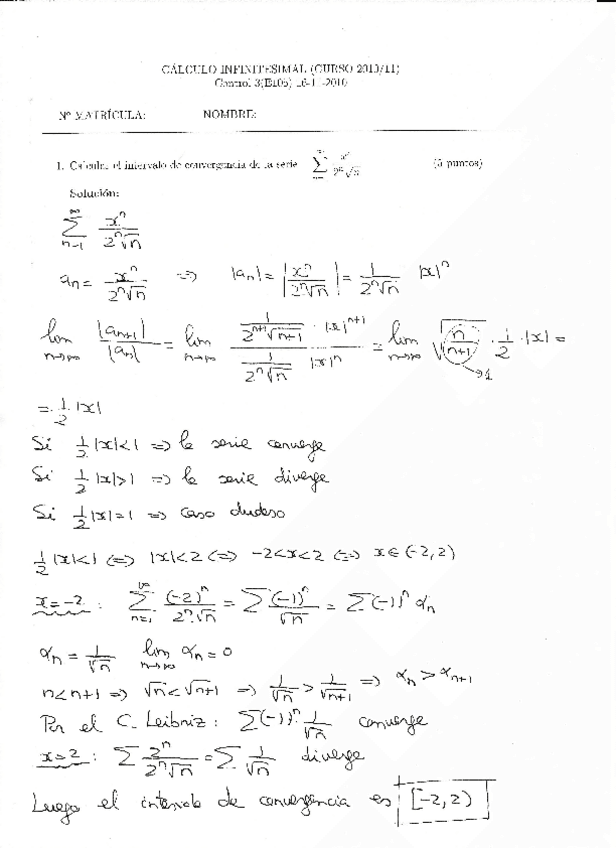 CÁLCULO INFINITESIMAL (CURSO 2010/11)
Control 3(E105) 16-11-2010
Nº MATRÍCULA: NOMBRE:
1. Calcula el intervalo de convergencia de la serie ∑ xⁿ/(2ⁿ√n) (5 puntos)
Solución:
∑_{n=1}^{∞} xⁿ/(2ⁿ√n)
aₙ = xⁿ/(2ⁿ√n) => |aₙ| = |xⁿ/(2ⁿ√n)| = 1/(2ⁿ√n) |x|ⁿ
lim_{n→∞} |aₙ₊₁|/|aₙ| = lim_{n→∞} (1/(2ⁿ⁺¹√(n+1)) · |x|ⁿ⁺¹)/(1/(2ⁿ√n) · |x|ⁿ) = lim_{n→∞} √(n/(n+1)) · 1/2 · |x| =
→1
= 1/2 |x|
Si 1/2 |x| < 1 => la serie converge
Si 1/2 |x| > 1 => la serie diverge
Si 1/2 |x| = 1 => caso dudoso
1/2 |x| < 1 <=> |x| < 2 <=> -2 < x < 2 <=> x ∈ (-2, 2)
x = -2 : ∑_{n=1}^{∞} (-2)ⁿ/(2ⁿ·√n) = ∑ (-1)ⁿ/√n = ∑ (-1)ⁿ αₙ
αₙ = 1/√n lim_{n→∞} αₙ = 0
n < n+1 => √n < √(n+1) => 1/√n > 1/√(n+1) => αₙ > αₙ₊₁
Por el C. Leibniz : ∑ (-1)ⁿ · 1/√n converge
x = 2 : ∑ 2ⁿ/(2ⁿ√n) = ∑ 1/√n diverge
Luego el intervalo de convergencia es [-2, 2)